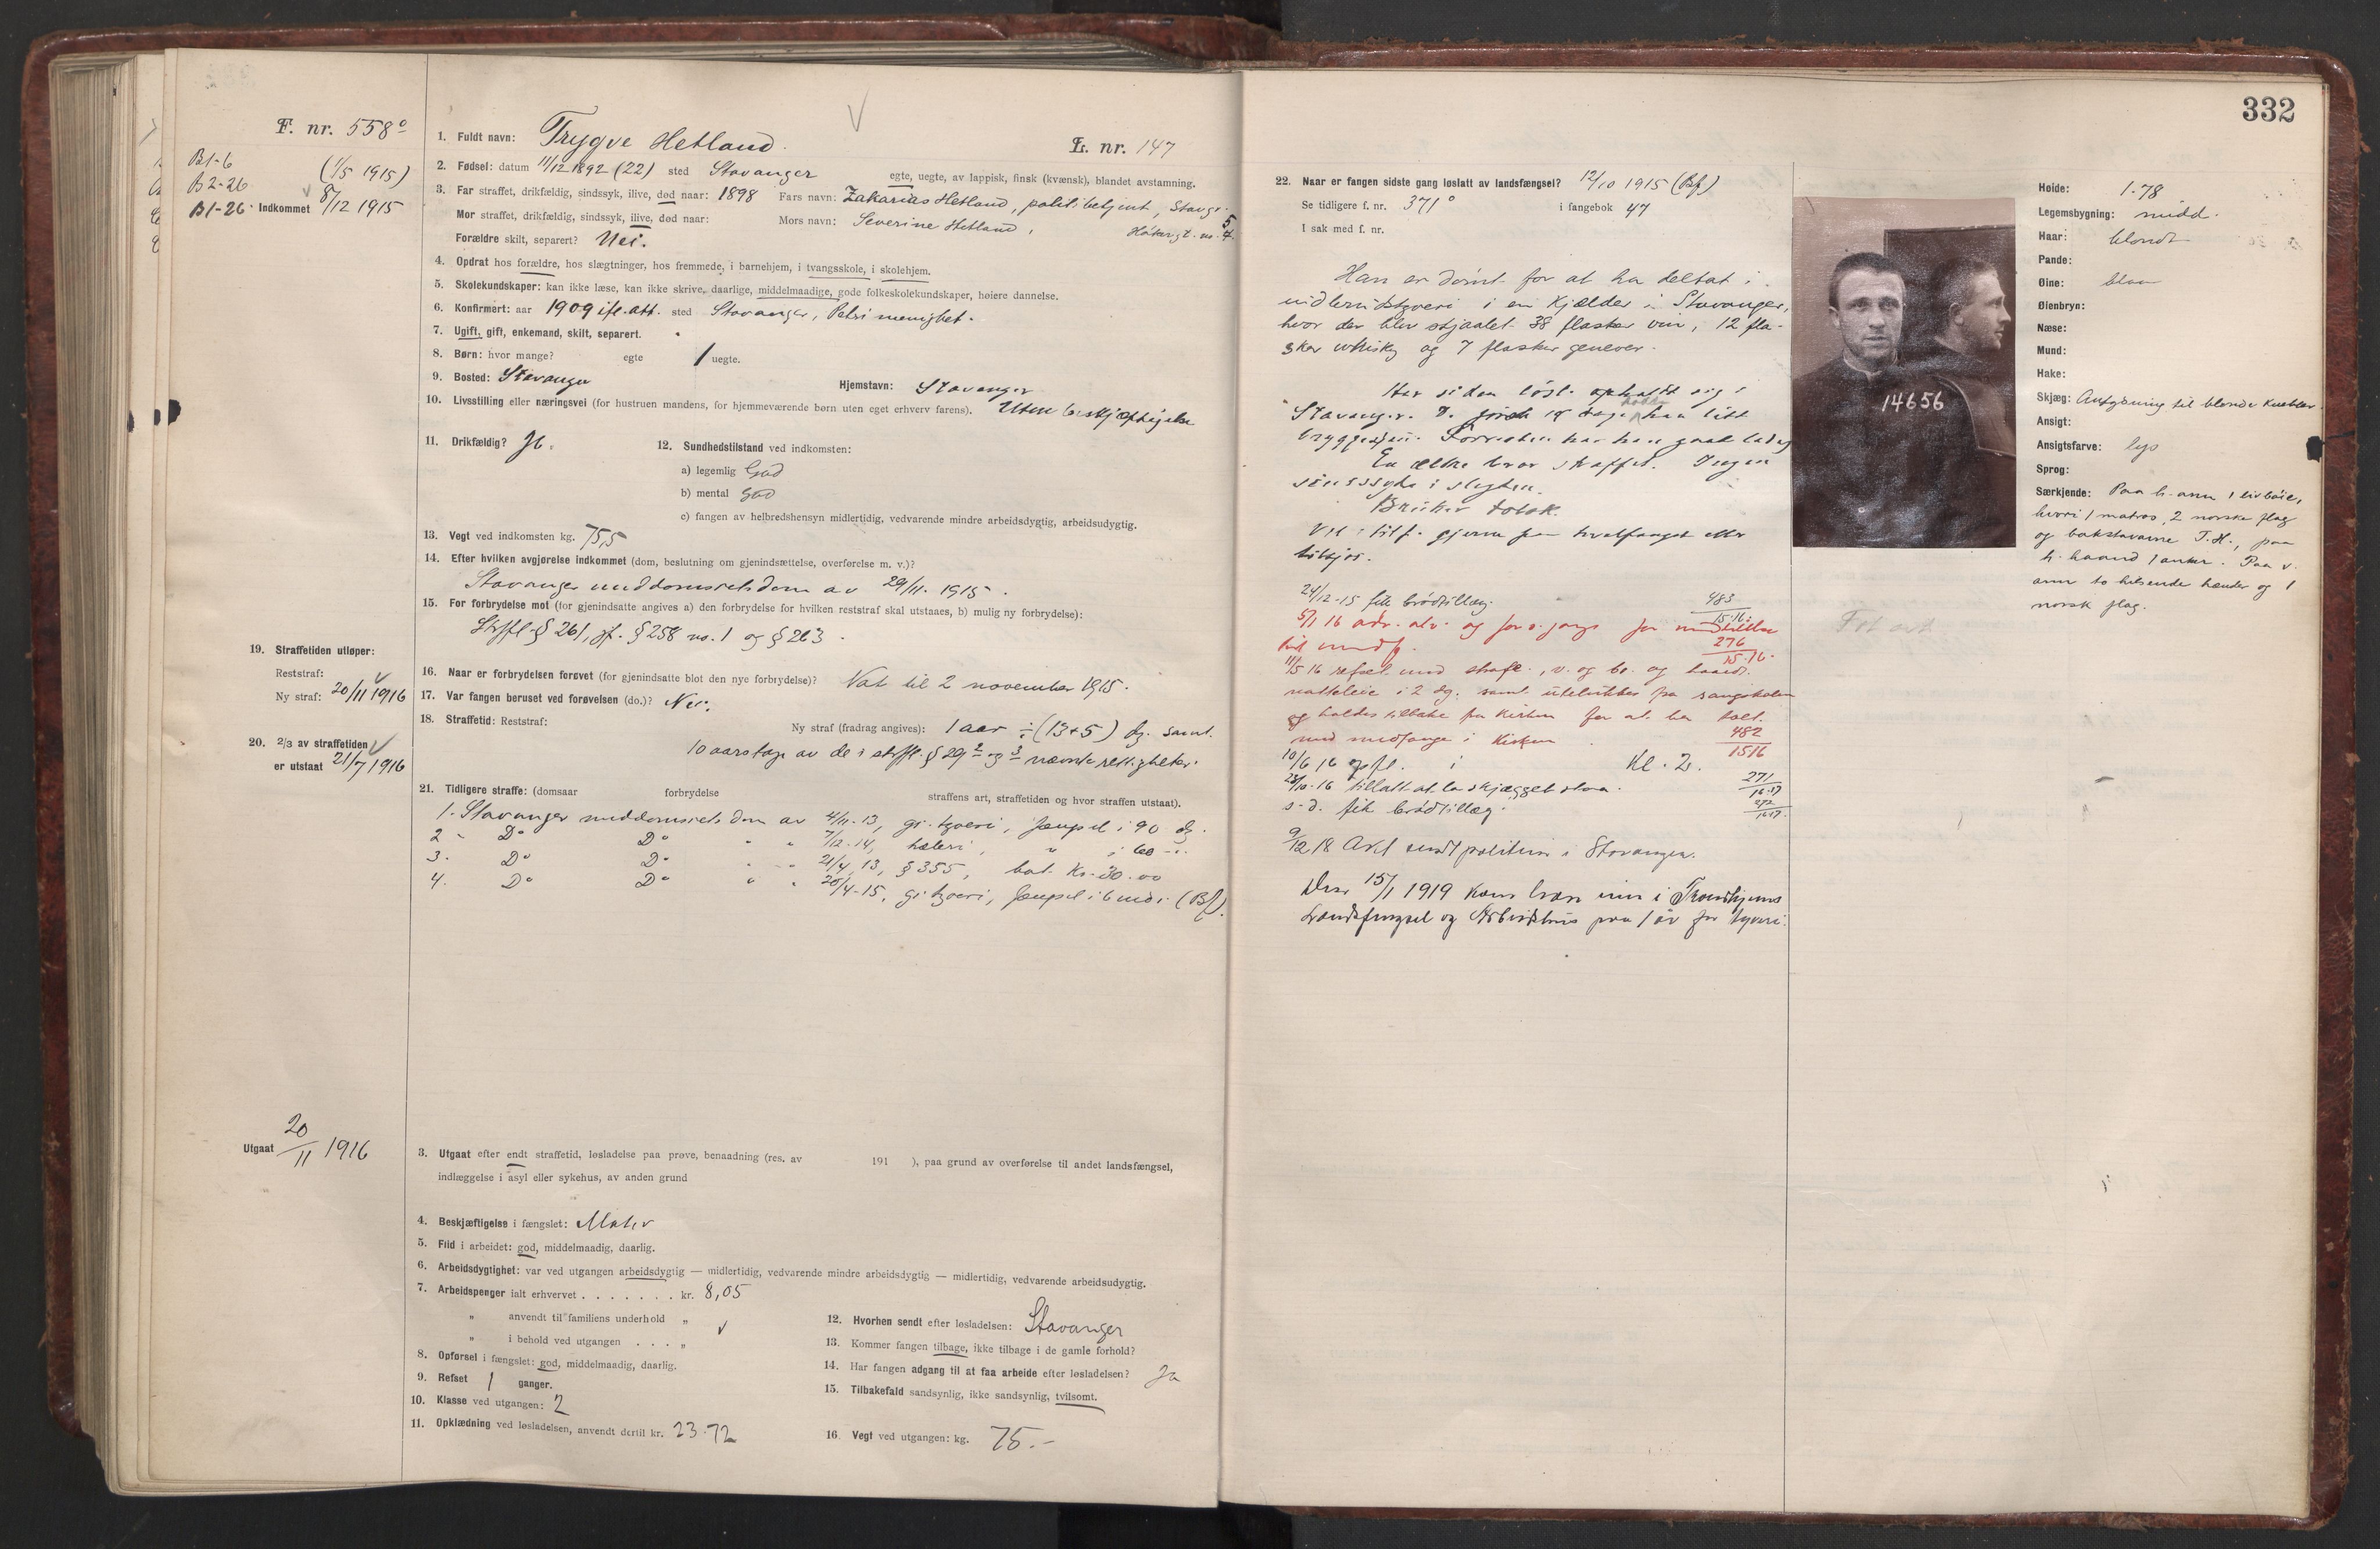 332
F. nr. 558º
B1-6 (1/5 1915)
B2-26
B1-26. Indkommet 8/12 1915
1. Fuldt navn: Trygve Hetland.
L. nr. 147
2. Fødsel: datum 11/12 1892 (22) sted Stavanger egte, uegte, av lappisk, finsk (kvænsk), blandet avstamning.
3. Far straffet, drikfældig, sindssyk, ilive, død naar: 1898 Fars navn: Zakarias Hetland, politibetjent, Stavgr.
Mor straffet, drikfældig, sindssyk, ilive, død naar: Mors navn: Severine Hetland,
Forældre skilt, separert? Nei.
4. Opdrat hos forældre, hos slægtninger, hos fremmede, i barnehjem, i tvangsskole, i skolehjem.
5. Skolekundskaper: kan ikke læse, kan ikke skrive, daarlige, middelmaadige, gode folkeskolekundskaper, høiere dannelse.
6. Konfirmert: aar 1909 ifl. att. sted Stavanger, Petri menighet.
7. Ugift, gift, enkemand, skilt, separert.
8. Børn: hvor mange? egte 1 uegte.
9. Bosted: Stavanger Hjemstavn: Stavanger
10. Livsstilling eller næringsvei (for hustruen mandens, for hjemmeværende børn uten eget erhverv farens). Uten beskjæftigelse
11. Drikfældig? Ja.
12. Sundhedstilstand ved indkomsten:
a) legemlig God
b) mental God
c) fangen av helbredshensyn midlertidig, vedvarende mindre arbeidsdygtig, arbeidsudygtig.
13. Vegt ved indkomsten kg. 75,5
14. Efter hvilken avgjørelse indkommet (dom, beslutning om gjenindsættelse, overførelse m. v.)?
Stavanger meddomsretsdom av 29/11. 1915.
15. For forbrydelse mot (for gjenindsatte angives a) den forbrydelse for hvilken reststraf skal utstaaes, b) mulig ny forbrydelse):
Strfl. § 261, jf. § 258 no. 1 og § 263.
16. Naar er forbrydelsen forøvet (for gjenindsatte blot den nye forbrydelse)? Nat til 2 november 1915.
17. Var fangen beruset ved forøvelsen (do.)? Nei.
18. Straffetid: Reststraf: Ny straf (fradrag angives): 1 aar ÷ (13+5) dg. samt
10 aars tap av de i strfl. § 29 2 og 3 nævnte rettigheter.
19. Straffetiden utløper:
Reststraf:
Ny straf: 20/11 1916
20. 2/3 av straffetiden
er utstaat 21/7 1916
21. Tidligere straffe: (domsaar forbrydelse straffens art, straffetiden og hvor straffen utstaat).
1. Stavanger meddomsrets dom av 4/11-13, gr. tyveri, fængsel i 90 dg.
2 - Do Do " " 7/12-14, hæleri, " i 60 -"-
3. Do Do " " 21/4 13, § 355, bot Kr. 30.00
4. Do Do " " 20/4-15, gr. tyveri, fængsel i 6 mdr. (Bf).
Utgaat 20/11 1916
3. Utgaat efter endt straffetid, løsladelse paa prøve, benaadning (res. av 191 ), paa grund av overførelse til andet landsfængsel,
indlæggelse i asyl eller sykehus, av anden grund
4. Beskjæftigelse i fængslet: Maler
5. Flid i arbeidet: god, middelmaadig, daarlig.
6. Arbeidsdygtighet: var ved utgangen arbeidsdygtig — midlertidig, vedvarende mindre arbeidsdygtig — midlertidig, vedvarende arbeidsudygtig.
7. Arbeidspenger ialt erhvervet . . . . . . . kr. 8,05
" anvendt til familiens underhold "
" i behold ved utgangen . . . "
8. Opførsel i fængslet: god, middelmaadig, daarlig.
9. Refset 1 ganger.
10. Klasse ved utgangen: 2
11. Opklædning ved løsladelsen, anvendt dertil kr. 23.72
12. Hvorhen sendt efter løsladelsen: Stavanger
13. Kommer fangen tilbage, ikke tilbage i de gamle forhold?
14. Har fangen adgang til at faa arbeide efter løsladelsen? Ja
15. Tilbakefald sandsynlig, ikke sandsynlig, tvilsomt.
16. Vegt ved utgangen: kg. 75.-
22. Naar er fangen sidste gang løslatt av landsfængsel? 12/10 1915 (Bf)
Se tidligere f. nr. 371º i fangebok 47
I sak med f. nr.
Han er dømt for at ha deltat i
indbrudstyveri i en kjælder i Stavanger,
hvor der blev stjaalet 38 flasker vin, 12 fla-
sker whisky og 7 flasker genever.
Har siden løsl. opholdt sig i
Stavanger. han litt
bryggesjau. Forresten har han gaat ledig
En ældre bror straffet. Ingen
sinnssyke i slegten.
Bruker tobak.
Vil i tilf. gjerne paa hvalfangst eller
tilsjøs.
24/12-15 fik brødtillæg. 483/15.16.
5/1 16 adv. alv. for
276/15.16.
11/5 16 refset med v. og br. og haardt
natteleie i 2 dg. samt utelukkes fra sangskolen
og holdes tilbake fra kirken for at ha talt
med medfange i kirken. 482/1516
10/6 16 opfl. i Kl. 2. 271/16.17
28/10-16 tillatt at la skjægget staa. 272/1617
s. d. fik brødtillæg.
9/12 18 Akt sendt politiem. i Stavanger.
Den 15/1 1919 kom han inn i Trondhjems
Landsfengsel og Arbeidshus paa 1 år for tyveri.
14656
Høide: 1.78
Legemsbygning: midd.
Haar: blondt
Pande:
Øine: blaa
Øienbryn:
Næse:
Mund:
Hake:
Skjæg: Antydning til blonde knebler.
Ansigt:
Ansigtsfarve: lys
Sprog:
Særkjende: Paa h. arm 1 livbøie,
hvori 1 matros, 2 norske flag
og bokstavene T.H., paa
h. haand 1 anker. Paa v.
arm to hilsende hænder og 1
norsk flag.